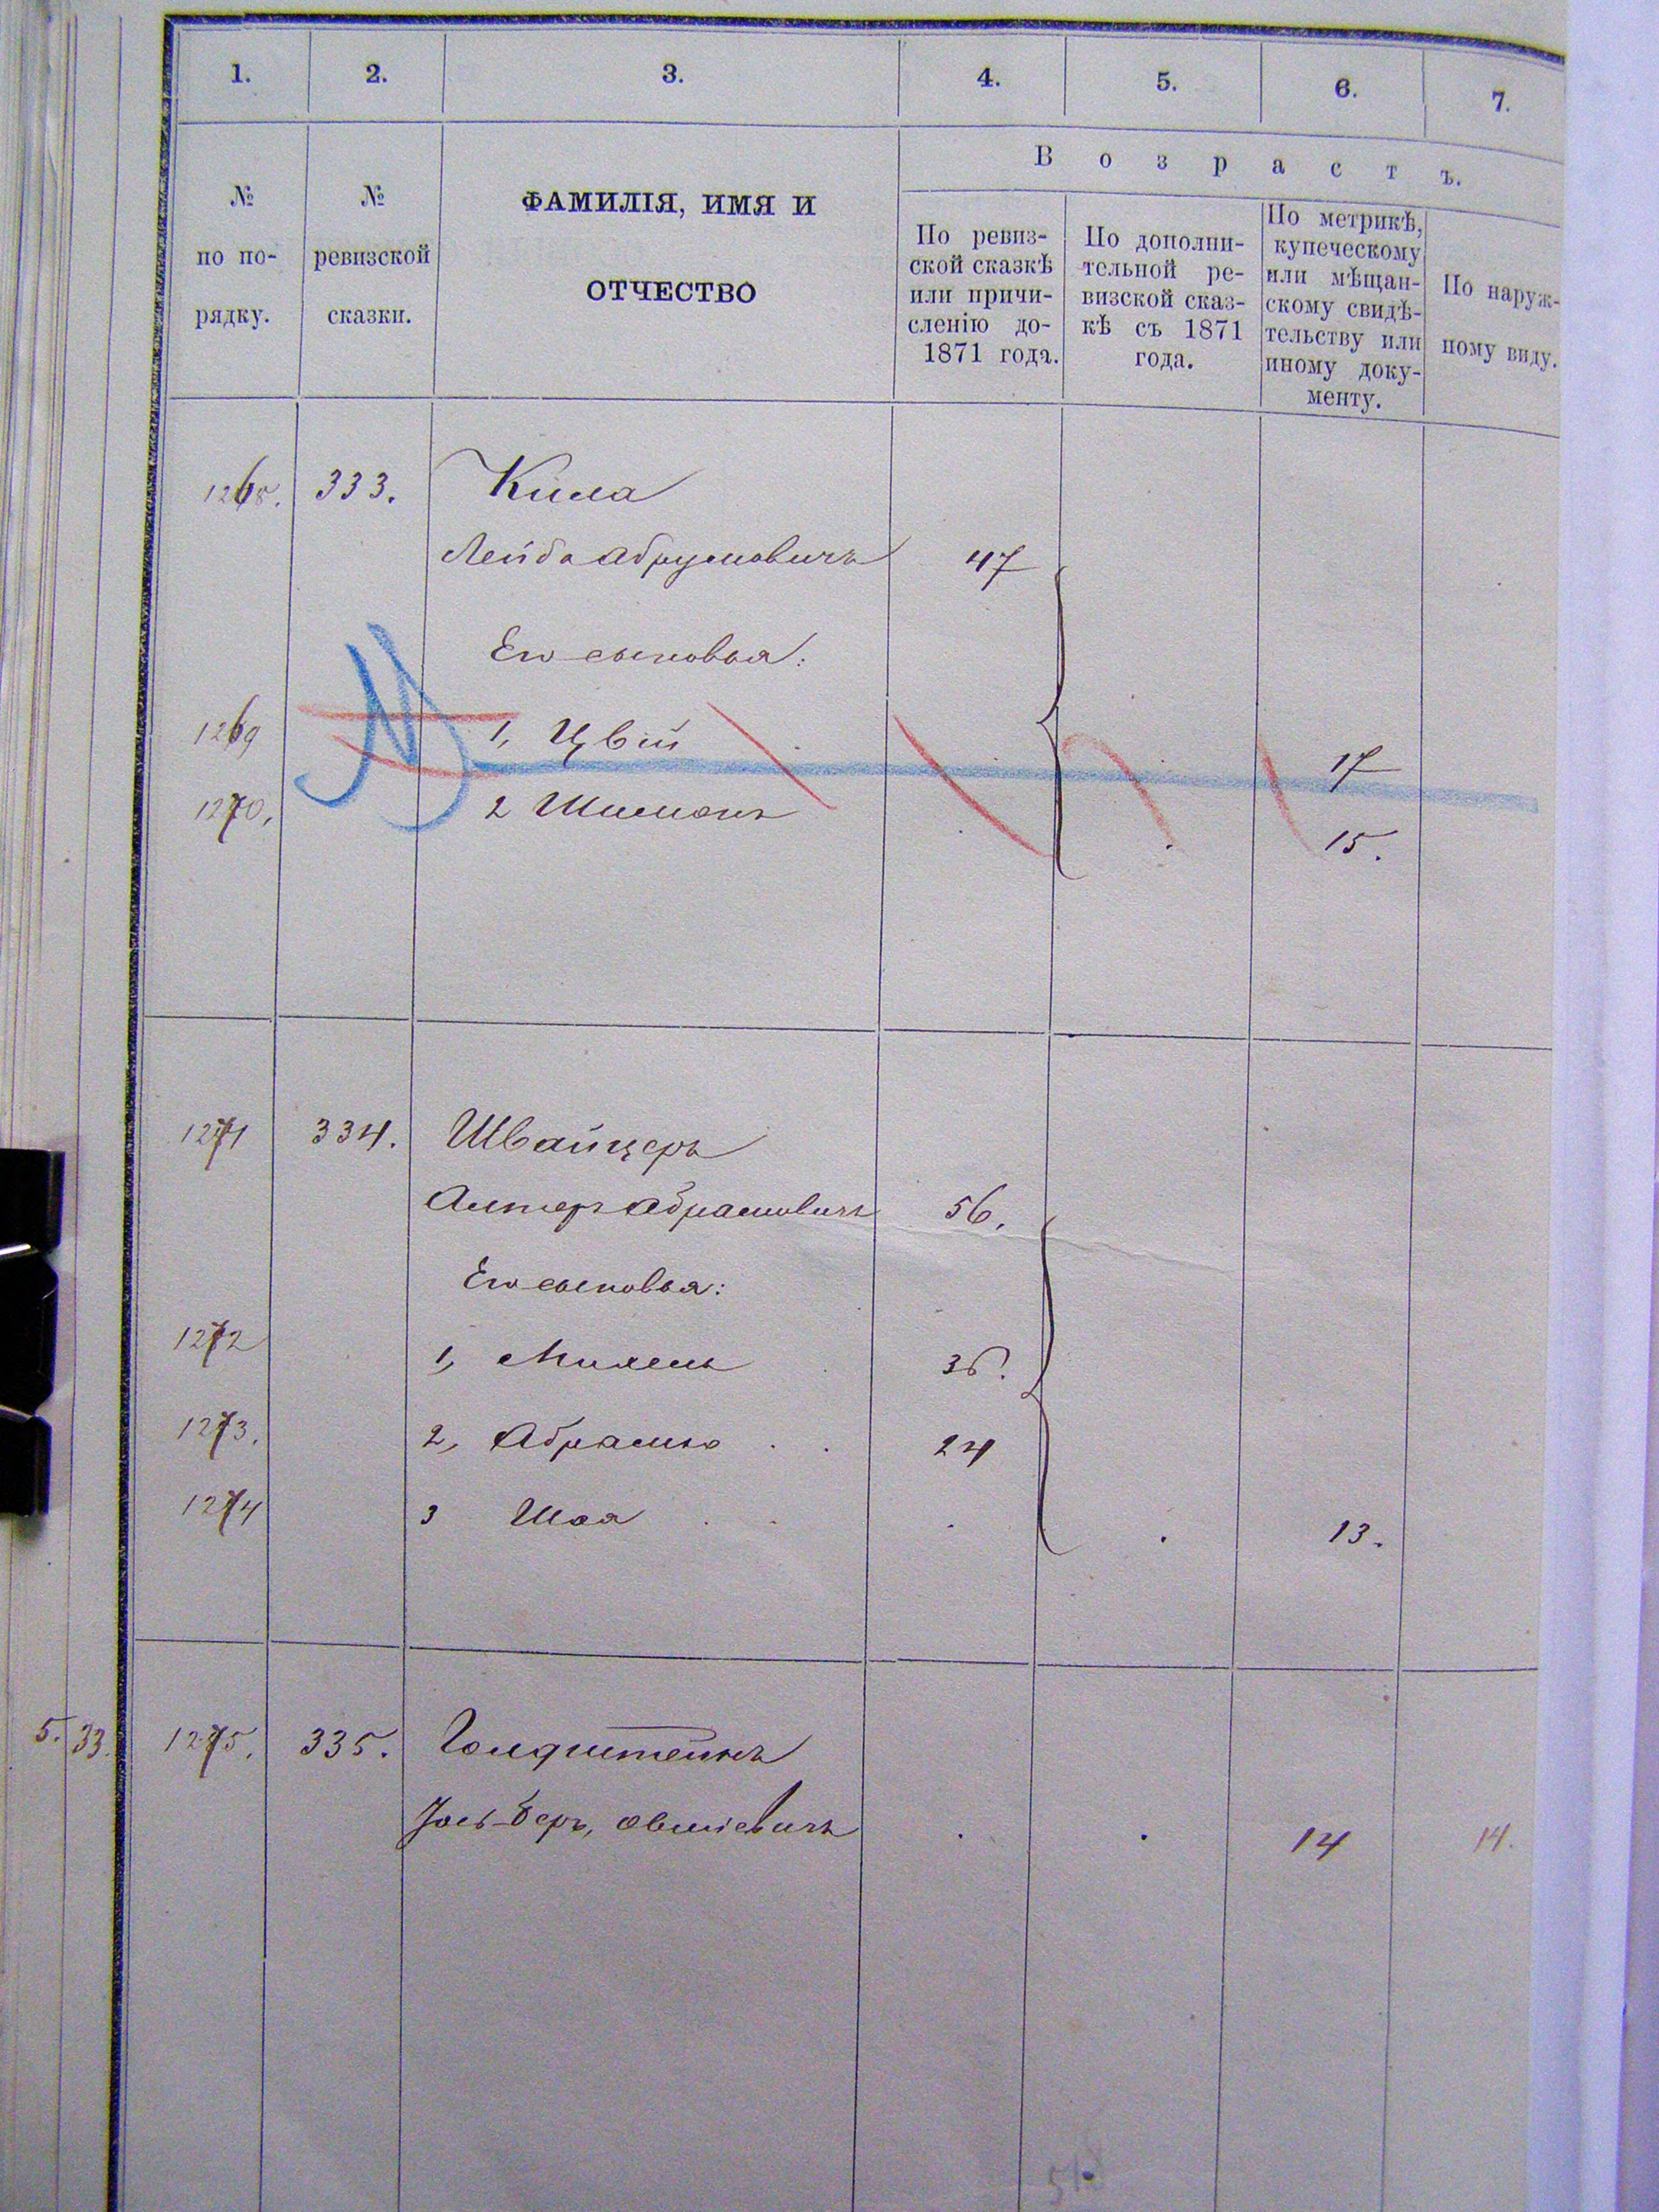 1. 2. 3. 4. 5. 6. 7.
№
по по-
рядку.
№
ревизской
сказки.
ФАМИЛІЯ, ИМЯ И
ОТЧЕСТВО
Возрастъ.
По ревиз-
ской сказкѣ
или причи-
сленію до-
1871 года.
По дополни-
тельной ре-
визской сказ-
кѣ съ 1871
года.
По метрикѣ,
купеческому
или мѣщан-
скому свидѣ-
тельству или
иному доку-
менту.
По наруж-
ному виду.
1268. 333. Кила
Лейба Абрумовичъ 47
Его сыновья:
1269 1, Цвій 17
1270, 2 Шимонъ 15.
1271 334. Швайцеръ
Алтеръ Абрамовичъ 56.
Его сыновья:
1272 1, Михель 36.
1273. 2, Абрамко 24
1274 3 Шая 13.
5. 33. 1275. 335. Голдштейнъ
Іось-Беръ, Овшіевичъ 14 14.